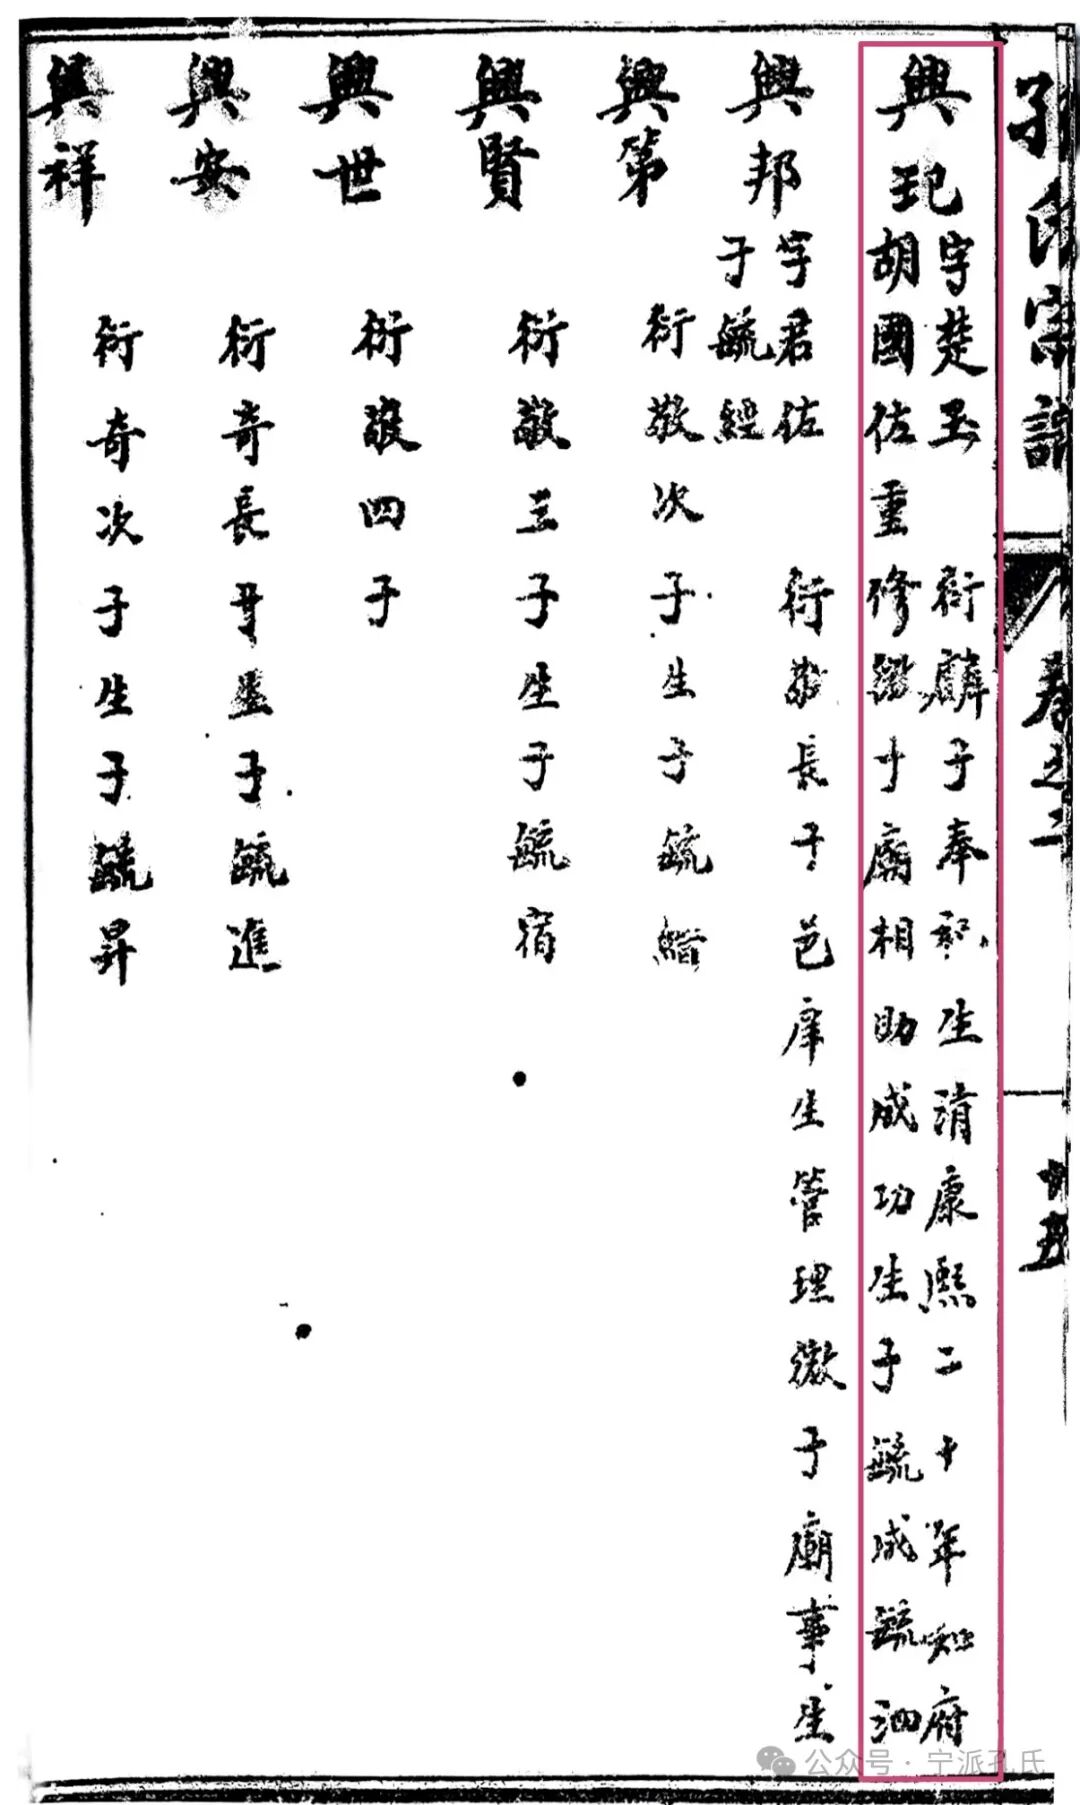 孔氏宗譜
卷之二
十五
興玘
字楚玉 衍麟子奉祀生清康熙二十年知府
胡國佐重修微子廟相助成功生子毓成毓泗
興邦
字君佐 衍敬長子邑庠生管理微子廟事生
子毓經
興第 衍敬次子生子毓
興賢 衍敬三子生子毓宿
興世 衍敬四子
興安 衍奇長子生子毓進
興祥 衍奇次子生子毓昇
公众号·宁派孔氏